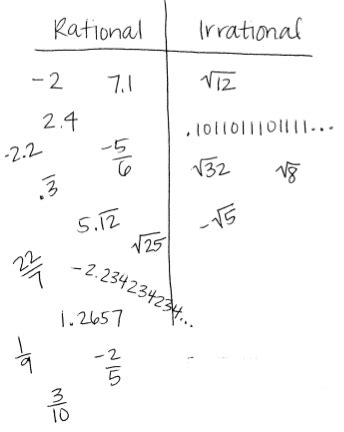 Rational Irrational
-2 7.1 √12
2.4 .1011011101111...
-2.2 -5/6 √32 √8
.3̅
5.1̅2̅ -√5
√25
22/7 -2.234234234...
1.2657
1/9 -2/5
3/10